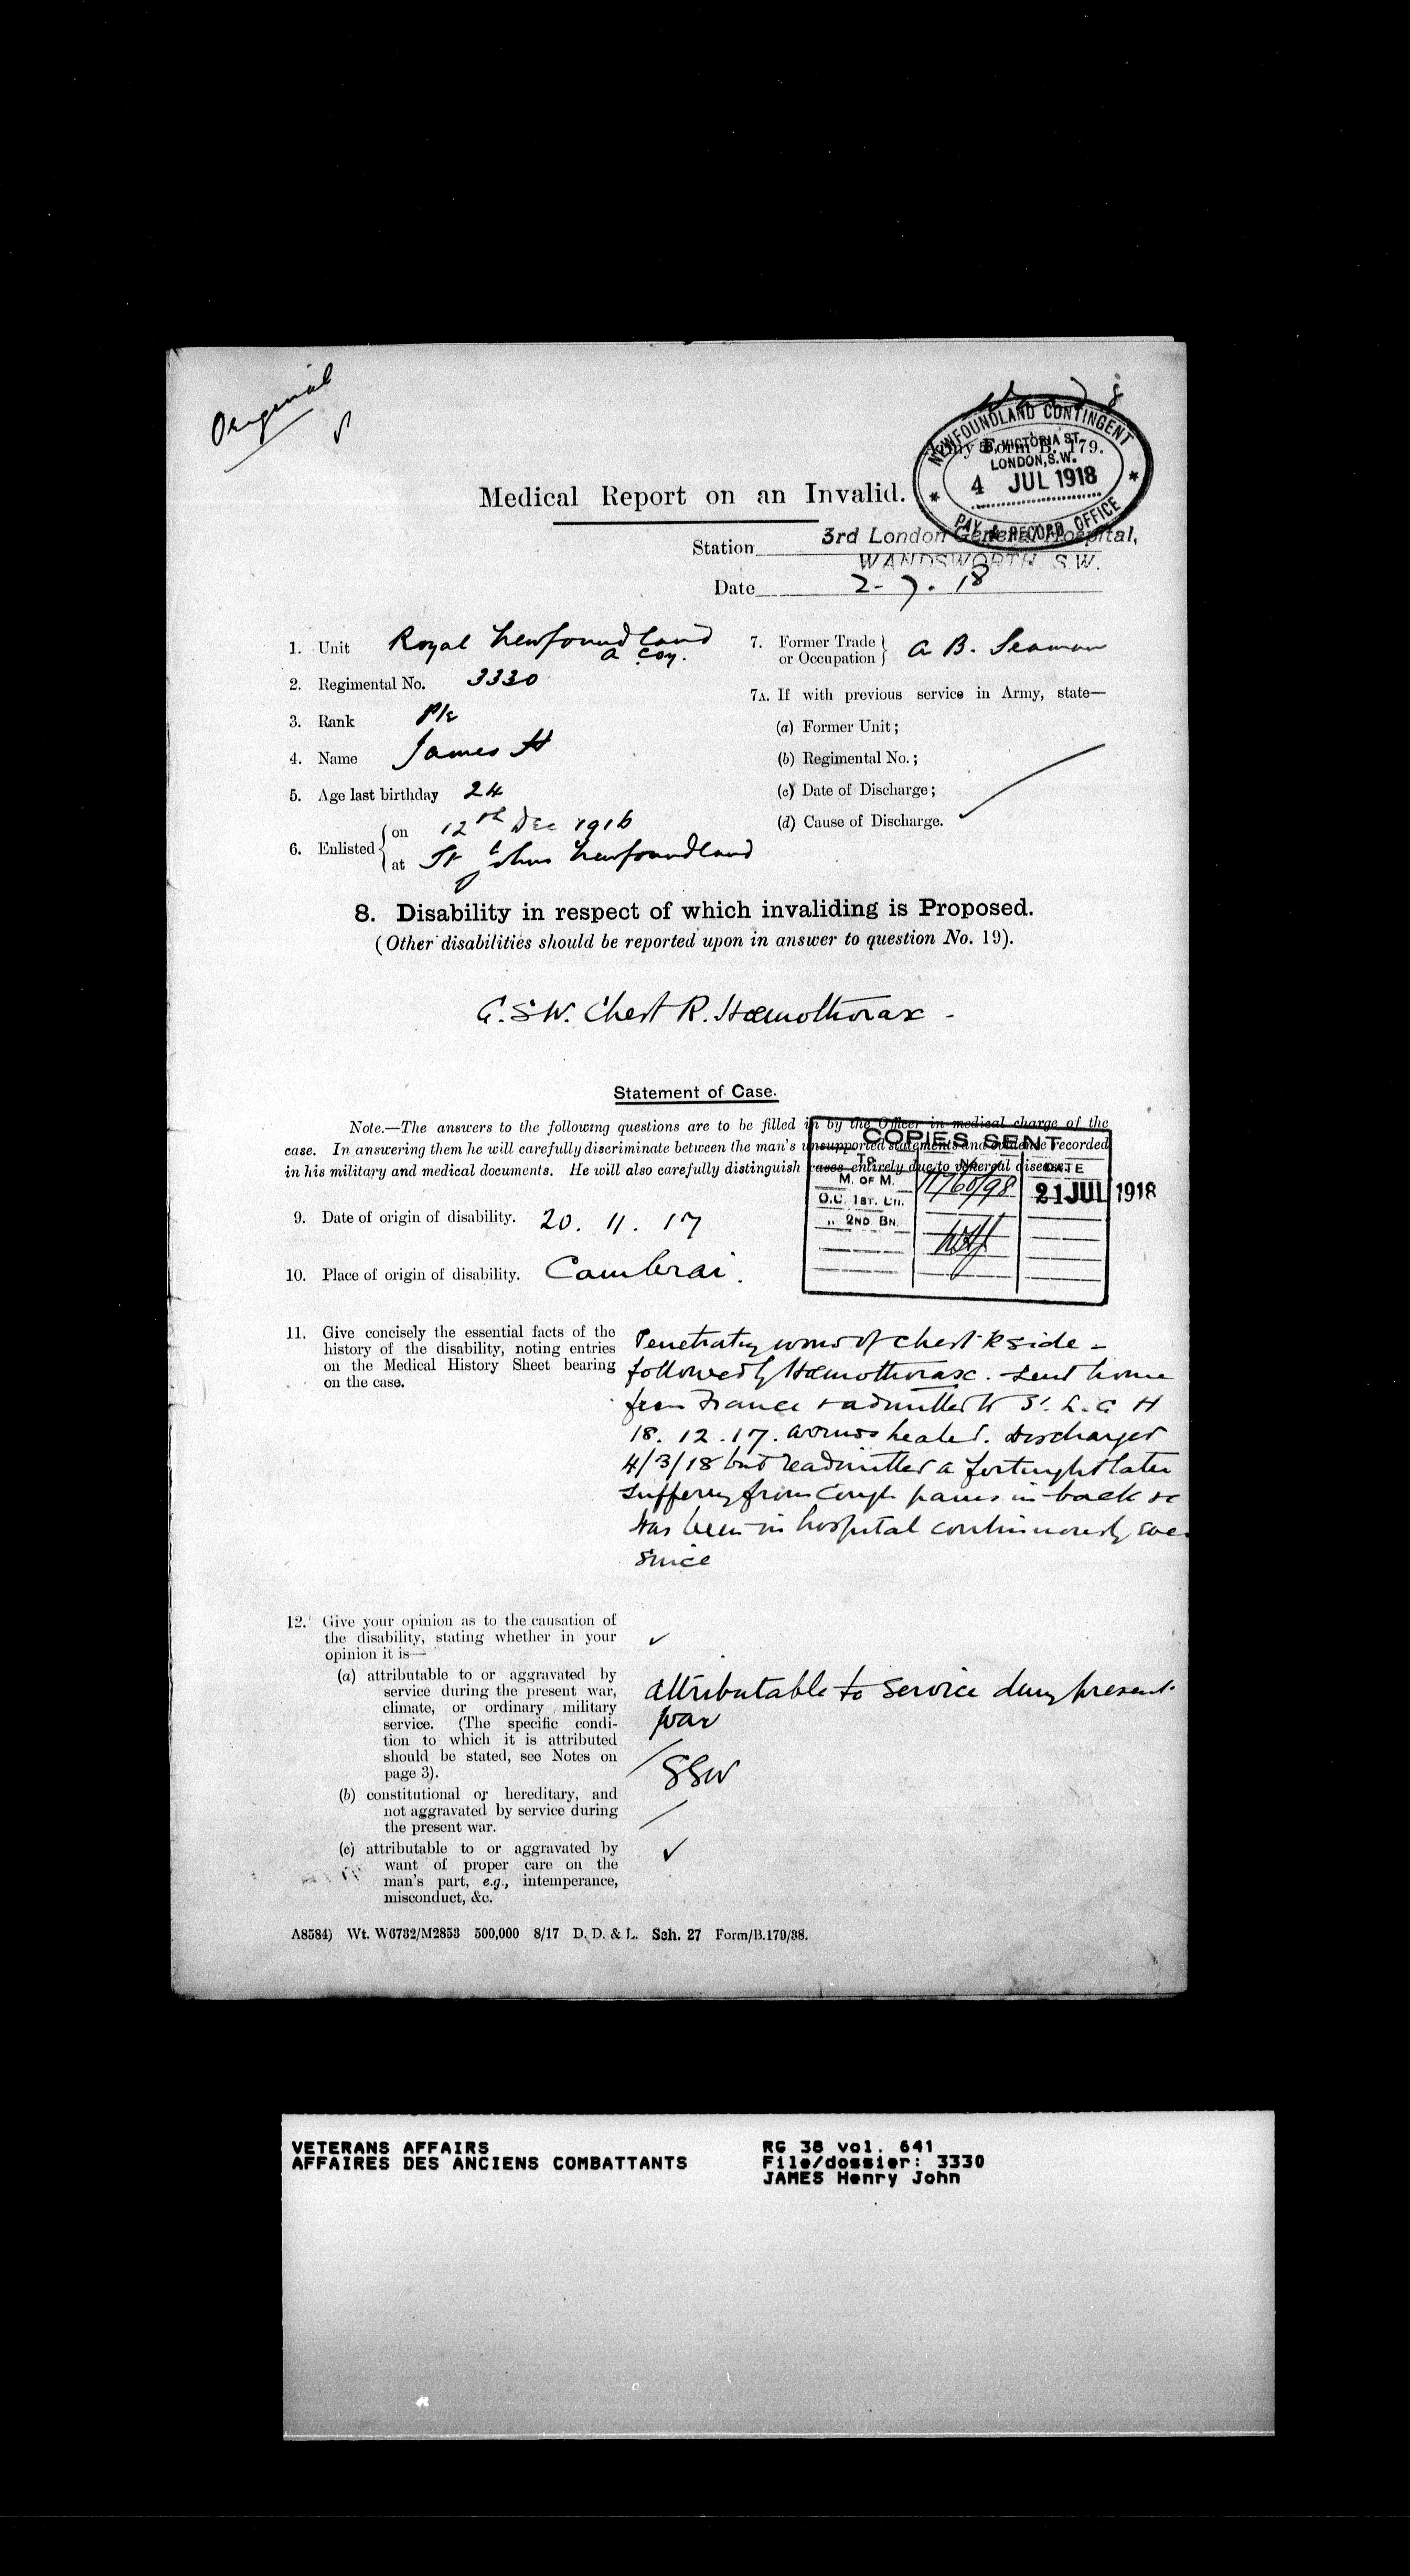 Original
Army Form B. 179.
NEWFOUNDLAND CONTINGENT
58, VICTORIA ST.
LONDON, S.W.
4 JUL 1918
PAY & RECORD OFFICE
Medical Report on an Invalid.
Station 3rd London General Hospital,
WANDSWORTH, S.W.
Date 2-7.18
1. Unit Royal Newfoundland
A Coy.
2. Regimental No. 3330
3. Rank Pte
4. Name James H
5. Age last birthday 24
6. Enlisted on 12th Dec 1916
at St Johns Newfoundland
7. Former Trade or Occupation A B. Seaman
7A. If with previous service in Army, state—
(a) Former Unit;
(b) Regimental No.;
(c) Date of Discharge;
(d) Cause of Discharge.
8. Disability in respect of which invaliding is Proposed.
(Other disabilities should be reported upon in answer to question No. 19).
G.S.W. Chest R. Haemothorax -
Statement of Case.
Note.—The answers to the following questions are to be filled in by the Officer in medical charge of the
case. In answering them he will carefully discriminate between the man's unsupported statements and evidence recorded
in his military and medical documents. He will also carefully distinguish cases entirely due to venereal disease.
COPIES SENT
TO
DATE
M. OF M. 11/60/98 21 JUL 1918
O.C. 1ST. Bn.
„ 2ND BN.
9. Date of origin of disability. 20. 11. 17
10. Place of origin of disability. Cambrai.
11. Give concisely the essential facts of the
history of the disability, noting entries
on the Medical History Sheet bearing
on the case.
Penetrating wound of chest R side -
followed by Haemothorax. Sent home
from France & admitted to 3. L. G H
18. 12. 17. wounds healed. Discharged
4/3/18 but readmitted a fortnight later
suffering from Cough pains in back &c
Has been in hospital continuously ever
since
12. Give your opinion as to the causation of
the disability, stating whether in your
opinion it is—
(a) attributable to or aggravated by
service during the present war,
climate, or ordinary military
service. (The specific condi-
tion to which it is attributed
should be stated, see Notes on
page 3).
attributable to service during present
war
GSW
(b) constitutional or hereditary, and
not aggravated by service during
the present war.
(c) attributable to or aggravated by
want of proper care on the
man's part, e.g., intemperance,
misconduct, &c.
A8584) Wt. W6732/M2853 500,000 8/17 D. D. & L. Sch. 27 Form/B.179/38.
VETERANS AFFAIRS
AFFAIRES DES ANCIENS COMBATTANTS
RG 38 vol. 641
File/dossier: 3330
JAMES Henry John